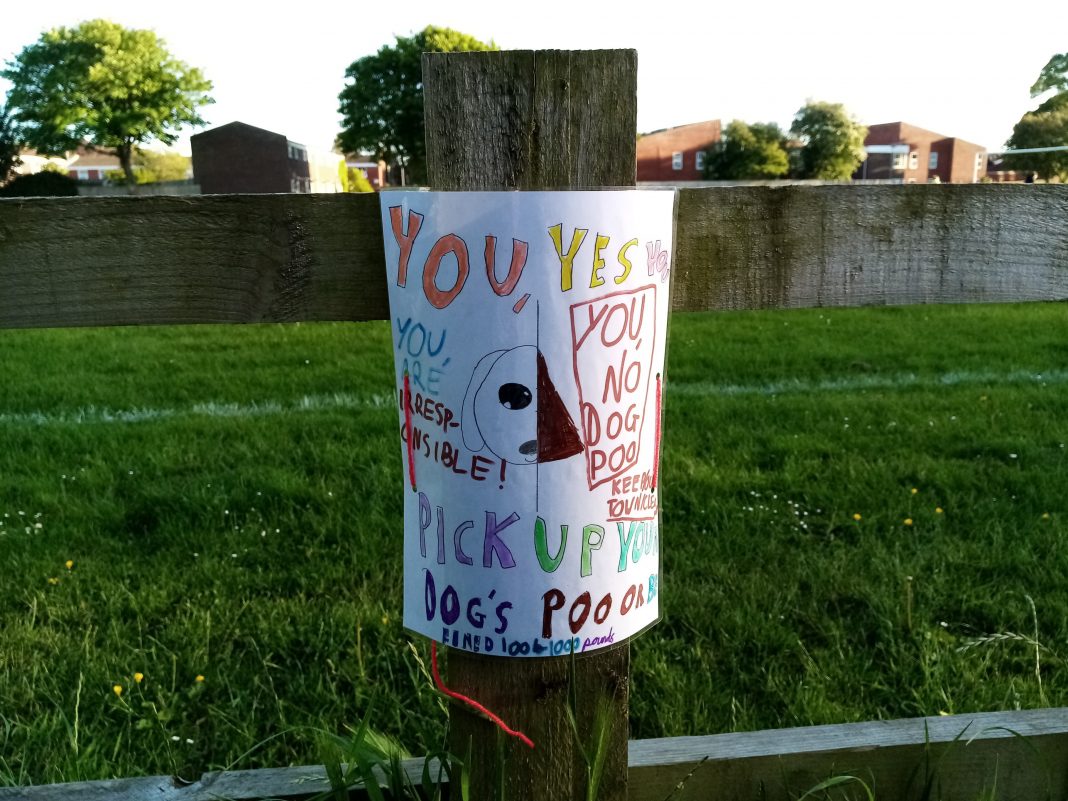 YOU, YES
YOU,
ARE
IRRESP-
ONSIBLE!
YOU,
NO
DOG
POO
PICK UP YOUR
DOG'S POO OR
FINED 100£-1000 pounds